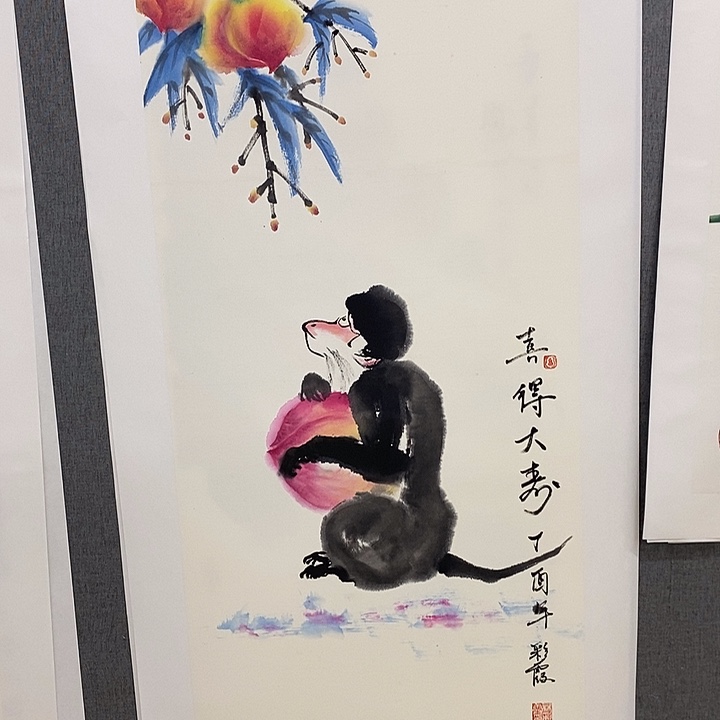 喜得大寿
丁酉年 彩霞